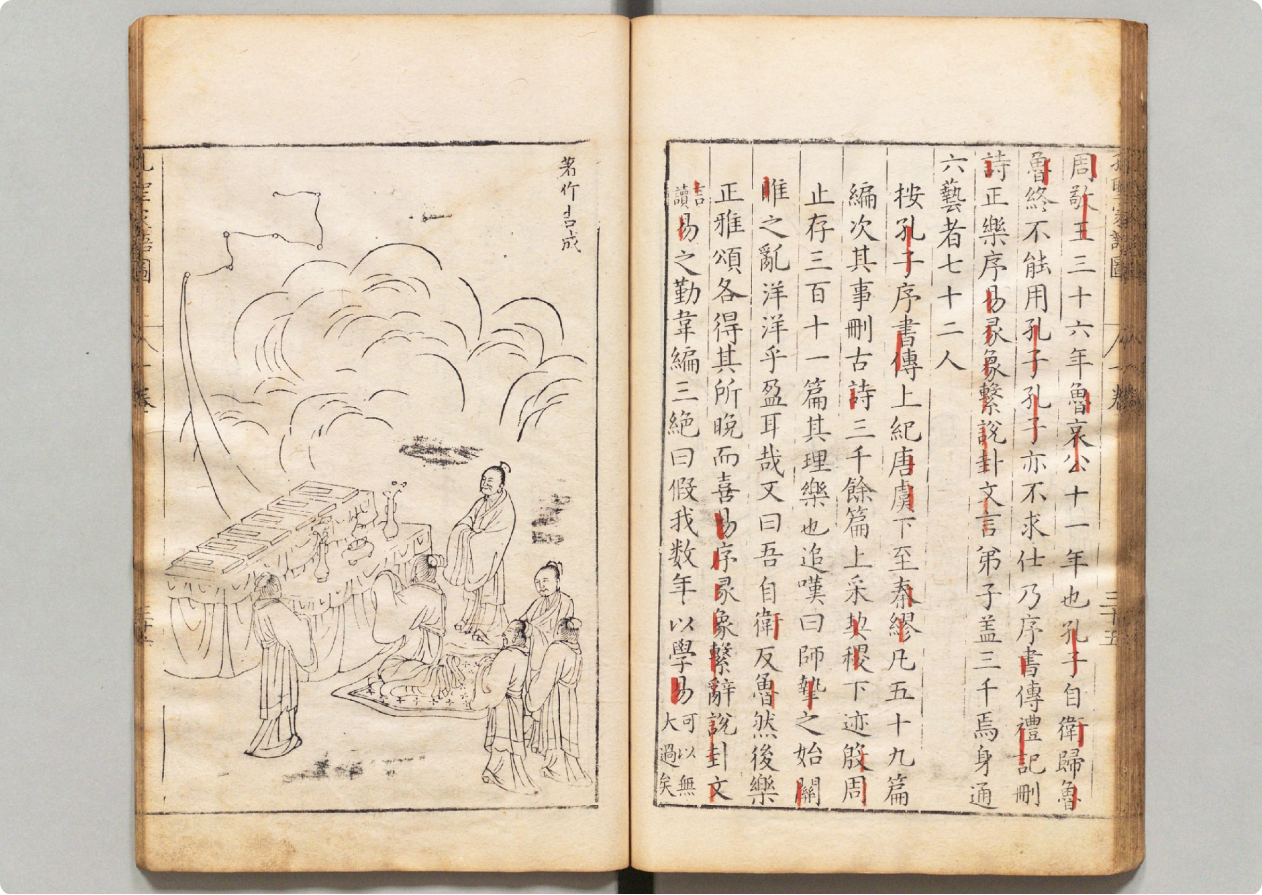 周敬王三十六年魯哀公十一年也孔子自衛歸魯
魯終不能用孔子孔子亦不求仕乃序書傳禮記刪
詩正樂序易彖象繫說卦文言弟子盖三千焉身通
六藝者七十二人
按孔子序書傳上紀唐虞下至秦繆凡五十九篇
編次其事刪古詩三千餘篇上采契稷下迹殷周
止存三百十一篇其理樂也追嘆曰師摯之始關
雎之亂洋洋乎盈耳哉又曰吾自衛反魯然後樂
正雅頌各得其所晚而喜易序彖象繫辭說卦文
言
讀易之勤韋編三絶曰假我数年以學易可以無
大過矣
三十五
著作告成